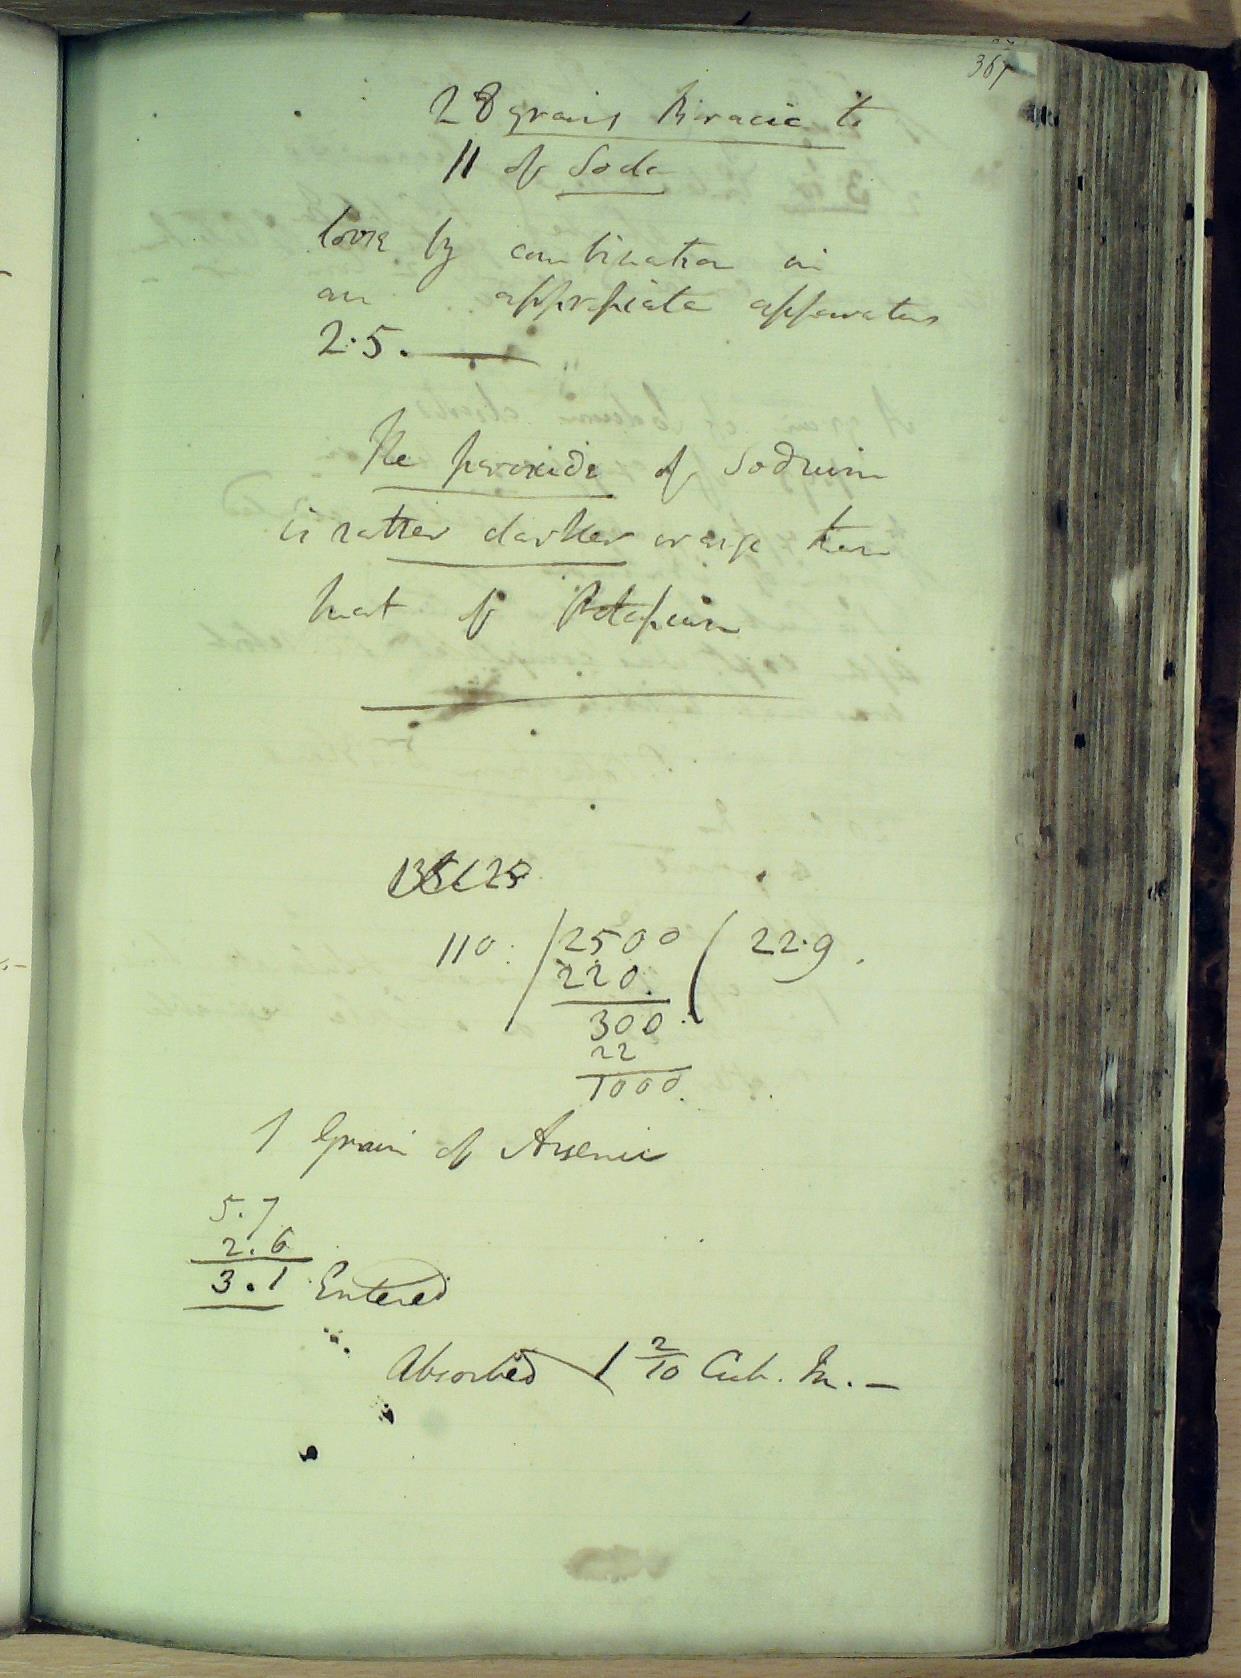 367
28 grains Boracic to
11 of Soda
loose by combination in
an appropiate apparatus
2.5.
The peroxide of Sodium
is rather darker orange than
that of Potassium
110. / 2500 ( 22.9.
220.
300.
22
1000.
1 Grain of Arsenic
5.7
2.6
3.1 Entered
Absorbed 1 2/10 Cub. In. —